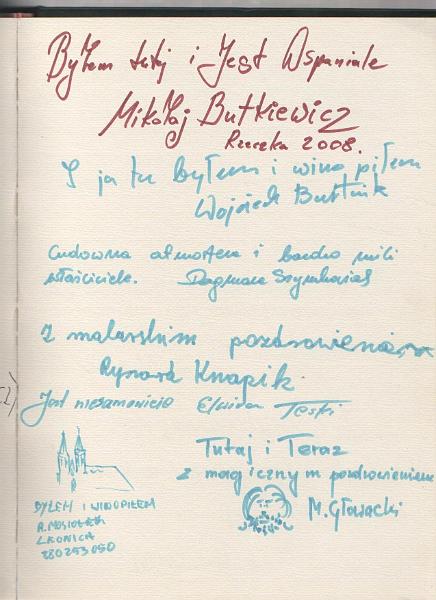 Byłem tutaj i Jest Wspaniale
Mikołaj Butkiewicz
Rzeczka 2008.
I ja tu byłem i wino piłem
Wojciech
Cudowna atmosfera i bardzo mili
właściciele. Dagmara
Z malarskim pozdrowieniem
Ryszard Knapik.
Jest niesamowicie Elwira Teski
Tutaj i Teraz
z magicznym pozdrowieniem
M. Głowacki
BYŁEM I WINO PIŁEM